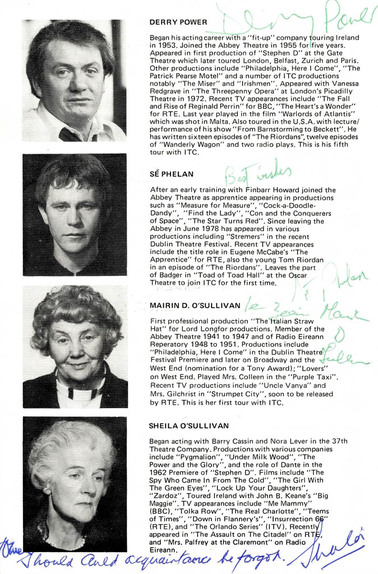 Derry Power
DERRY POWER
Began his acting career with a "fit-up" company touring Ireland
in 1953. Joined the Abbey Theatre in 1955 for five years.
Appeared in first production of "Stephen D" at the Gate
Theatre which later toured London, Belfast, Zurich and Paris.
Other productions include "Philadelphia, Here I Come", "The
Patrick Pearse Motel" and a number of ITC productions
notably "The Miser" and "Irishmen". Appeared with Vanessa
Redgrave in "The Threepenny Opera" at London's Picadilly
Theatre in 1972. Recent TV appearances include "The Fall
and Rise of Reginald Perrin" for BBC, "The Heart's a Wonder"
for RTE. Last year played in the film "Warlords of Atlantis"
which was shot in Malta. Also toured in the U.S.A. with lecture/
performance of his show "From Barnstorming to Beckett". He
has written sixteen episodes of "The Riordans", twelve episodes
of "Wanderly Wagon" and two radio plays. This is his fifth
tour with ITC.
Best wishes
SÉ PHELAN
After an early training with Finbarr Howard joined the
Abbey Theatre as apprentice appearing in productions
such as "Measure for Measure", "Cock-a-Doodle-
Dandy", "Find the Lady", "Con and the Conquerors
of Space", "The Star Turns Red". Since leaving the
Abbey in June 1978 has appeared in various
productions including "Stremers" in the recent
Dublin Theatre Festival. Recent TV appearances
include the title role in Eugene McCabe's "The
Apprentice" for RTE, also the young Tom Riordan
in an episode of "The Riordans". Leaves the part
of Badger in "Toad of Toad Hall" at the Oscar
Theatre to join ITC for the first time.
MAIRIN D. O'SULLIVAN
First professional production "The Italian Straw
Hat" for Lord Longfor productions. Member of the
Abbey Theatre 1941 to 1947 and of Radio Eireann
Reperatory 1948 to 1951. Productions include
"Philadelphia, Here I Come" in the Dublin Theatre
Festival Premiere and later on Broadway and the
West End (nomination for a Tony Award); "Lovers"
on West End. Played Mrs. Colleen in the "Purple Taxi".
Recent TV productions include "Uncle Vanya" and
Mrs. Gilchrist in "Strumpet City", soon to be released
by RTE. This is her first tour with ITC.
SHEILA O'SULLIVAN
Began acting with Barry Cassin and Nora Lever in the 37th
Theatre Company. Productions with various companies
include "Pygmalion", "Under Milk Wood", "The
Power and the Glory", and the role of Dante in the
1962 Premiere of "Stephen D". Films include "The
Spy Who Came In From The Cold", "The Girl With
The Green Eyes", "Lock Up Your Daughters",
"Zardoz", Toured Ireland with John B. Keane's "Big
Maggie". TV appearances include "Me Mammy"
(BBC), "Tolka Row", "The Real Charlotte", "Teems
of Times", "Down in Flannery's", "Insurrection 66"
(RTE), and "The Orlando Series" (ITV), Recently
appeared in "The Assault on The Citadel" on RTE,
and "Mrs. Palfrey at the Claremont" on Radio
Eireann.
Should Auld acquaintance be forgot. Sheila